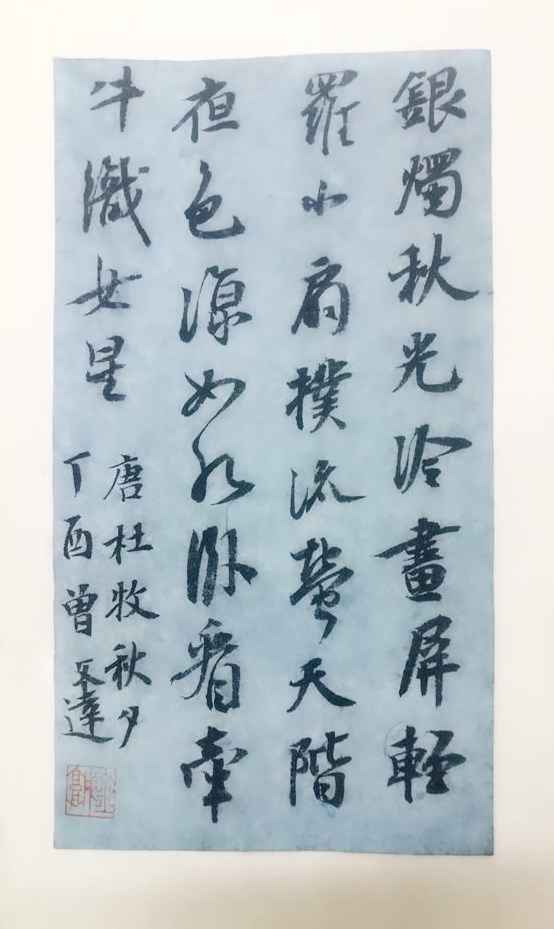 銀燭秋光冷畫屏輕
羅小扇撲流螢天階
夜色涼如水卧看牽
牛織女星
唐杜牧秋夕
丁酉曾達